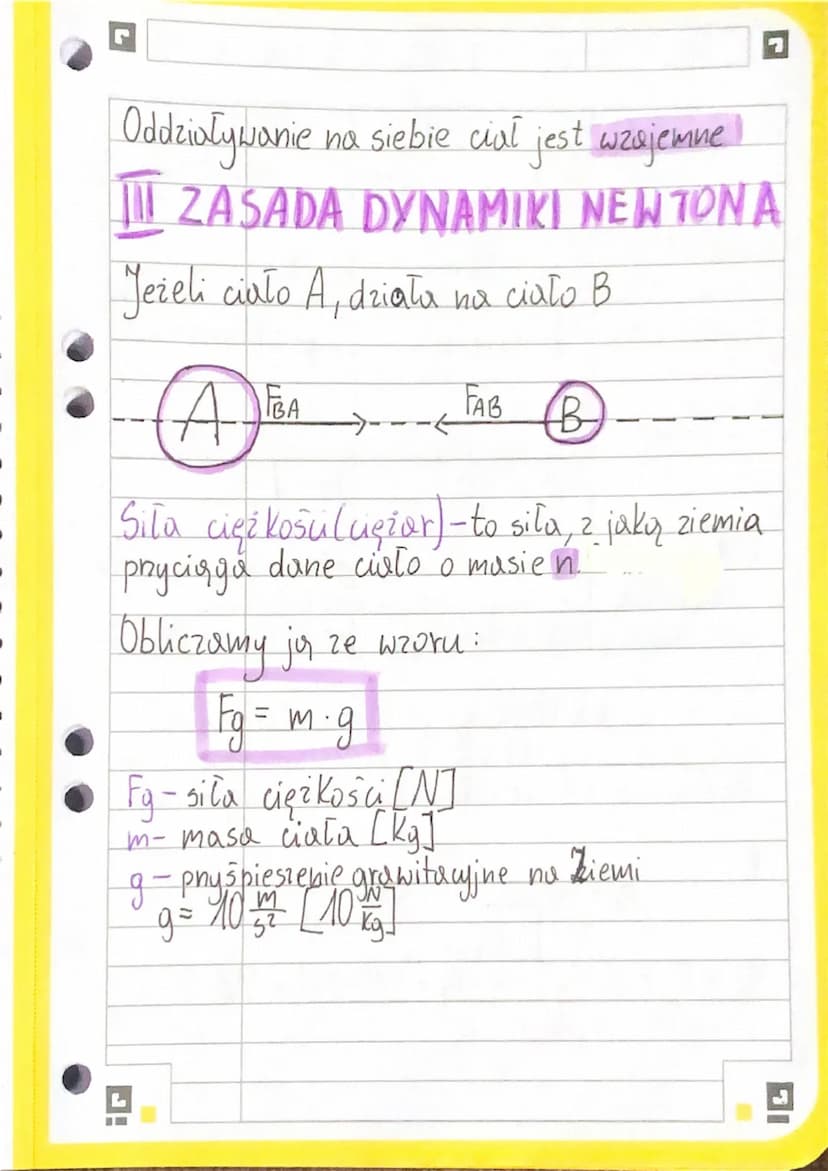 Oddziaływanie na siebie ciał jest wzajemne
III ZASADA DYNAMIKI NEWTONA
Jeżeli ciało A, działa na ciało B
A FBA FAB B
Siła ciężkości (ciężar) - to siła, z jaką ziemia
przyciąga dane ciało o masie n.
Obliczamy ją ze wzoru:
Fg = m · g
Fg - siła ciężkości [N]
m - masa ciała [kg]
g - przyśpieszenie grawitacyjne na Ziemi
g = 10 m/s² [10 N/kg]